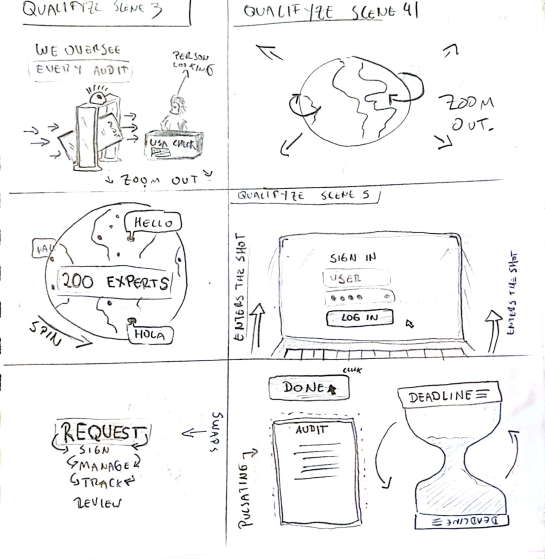 QUALIFYZE SCENE 3
WE OVERSEE
EVERY AUDIT
PERSON
LOOKING
USA CHECK
ZOOM OUT
QUALIFYZE SCENE 4
ZOOM
OUT.
HELLO
200 EXPERTS
HOLA
SPIN
QUALIFYZE SCENE 5
ENTERS THE SHOT
SIGN IN
USER
LOG IN
ENTERS THE SHOT
REQUEST
SIGN
MANAGE
TRACK
REVIEW
SWAPS
CLICK
DONE
AUDIT
PULSATING
DEADLINE
DEADLINE